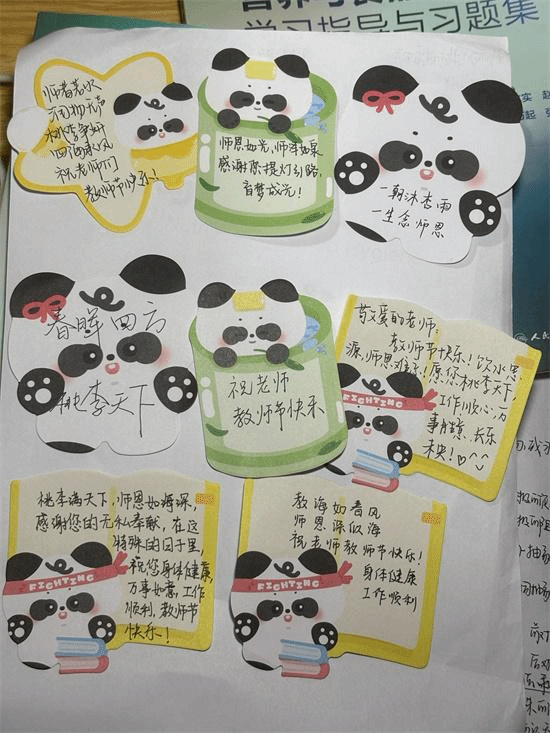 学习指导与习题集
师者若水
润物无声
四海春风
祝老师们
教师节快乐！
师恩如光，师泽如果
感谢您提灯引路，
育梦成光！
一朝沐杏雨
一生念师恩
春晖四方
桃李天下
祝老师
教师节快乐
敬爱的老师：
教师节快乐！饮水思
源，师恩难忘！愿您桃李天下，
工作顺心，万
事胜意，长乐
未央！
FIGHTING
桃李满天下，师恩如海深，
感谢您的无私奉献，在这
特殊的日子里，
祝您身体健康，
万事如意，工作
顺利，教师节
快乐！
FIGHTING
教海如春风
师恩深似海
祝老师教师节快乐！
身体健康
工作顺利
FIGHTING